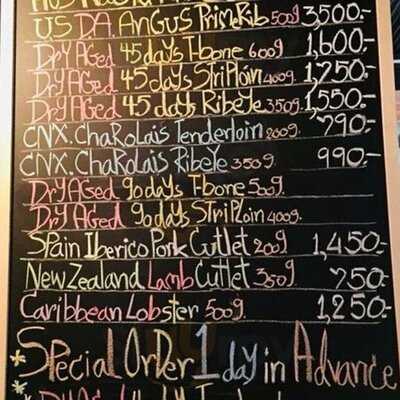 U.S D.A. Angus Prime Rib 500g 3,500.-
Dry Aged 45 days T-bone 600g 1,600.-
Dry Aged 45 days Striploin 400g. 1,250.-
Dry Aged 45 days RibeYe 350g. 1,550.-
CNX. ChaRoLais Tenderloin 200g. 790.-
CNX. ChaRoLais RibeYe 350g 990.-
Dry Aged 90 days T-bone 500g.
Dry Aged 90 days StriPloin 400g.
Spain Iberico Pork Cutlet 200g 1,450.-
New Zealand Lamb Cutlet 350g 750.-
Caribbean Lobster 500g. 1,250.-
*Special Order 1 day in Advance